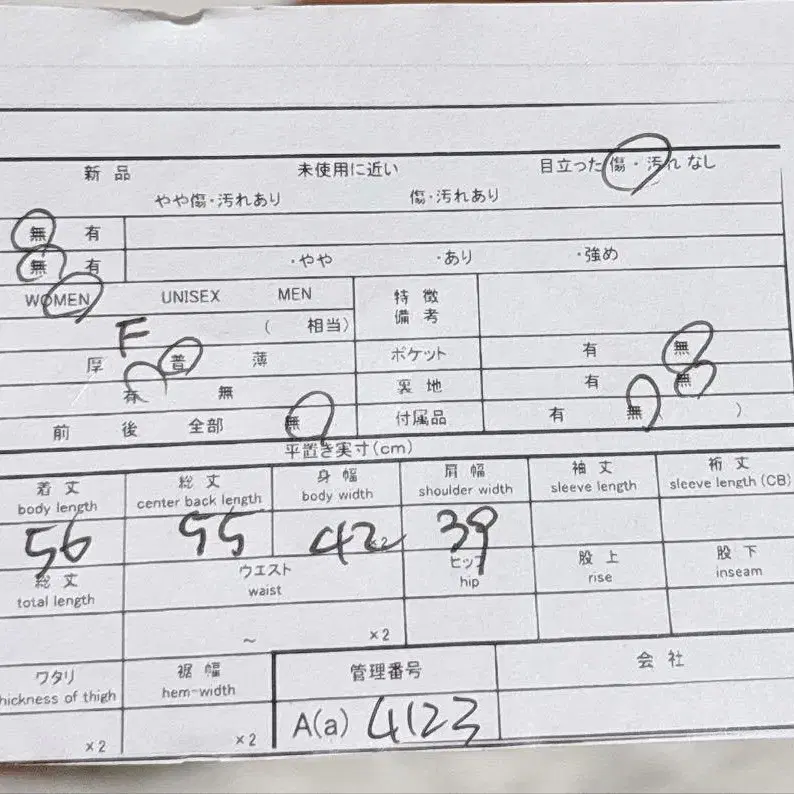 新品 未使用に近い 目立った傷・汚れなし
やや傷・汚れあり 傷・汚れあり
無 有
無 有 ・やや ・あり ・強め
WOMEN UNISEX MEN 特徴
備考
F ( 相当)
厚 普 薄 ポケット 有 無
有 無 裏地 有 無
前 後 全部 無 付属品 有 無 )
平置き実寸(cm)
着丈 総丈 身幅 肩幅 袖丈 裄丈
body length center back length body width shoulder width sleeve length sleeve length (CB)
56 55 42 ×2 39
総丈 ウエスト ヒップ 股上 股下
total length waist hip rise inseam
~ ×2
ワタリ 裾幅 管理番号 会社
hickness of thigh hem-width
×2 ×2 A(a) 4123